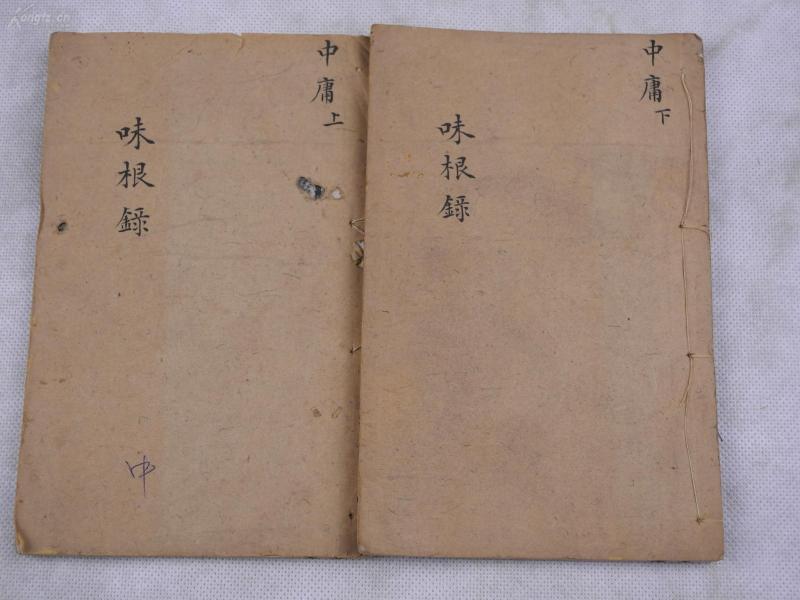 中庸上
味根錄
中
中庸下
味根錄
Kongfz.cn